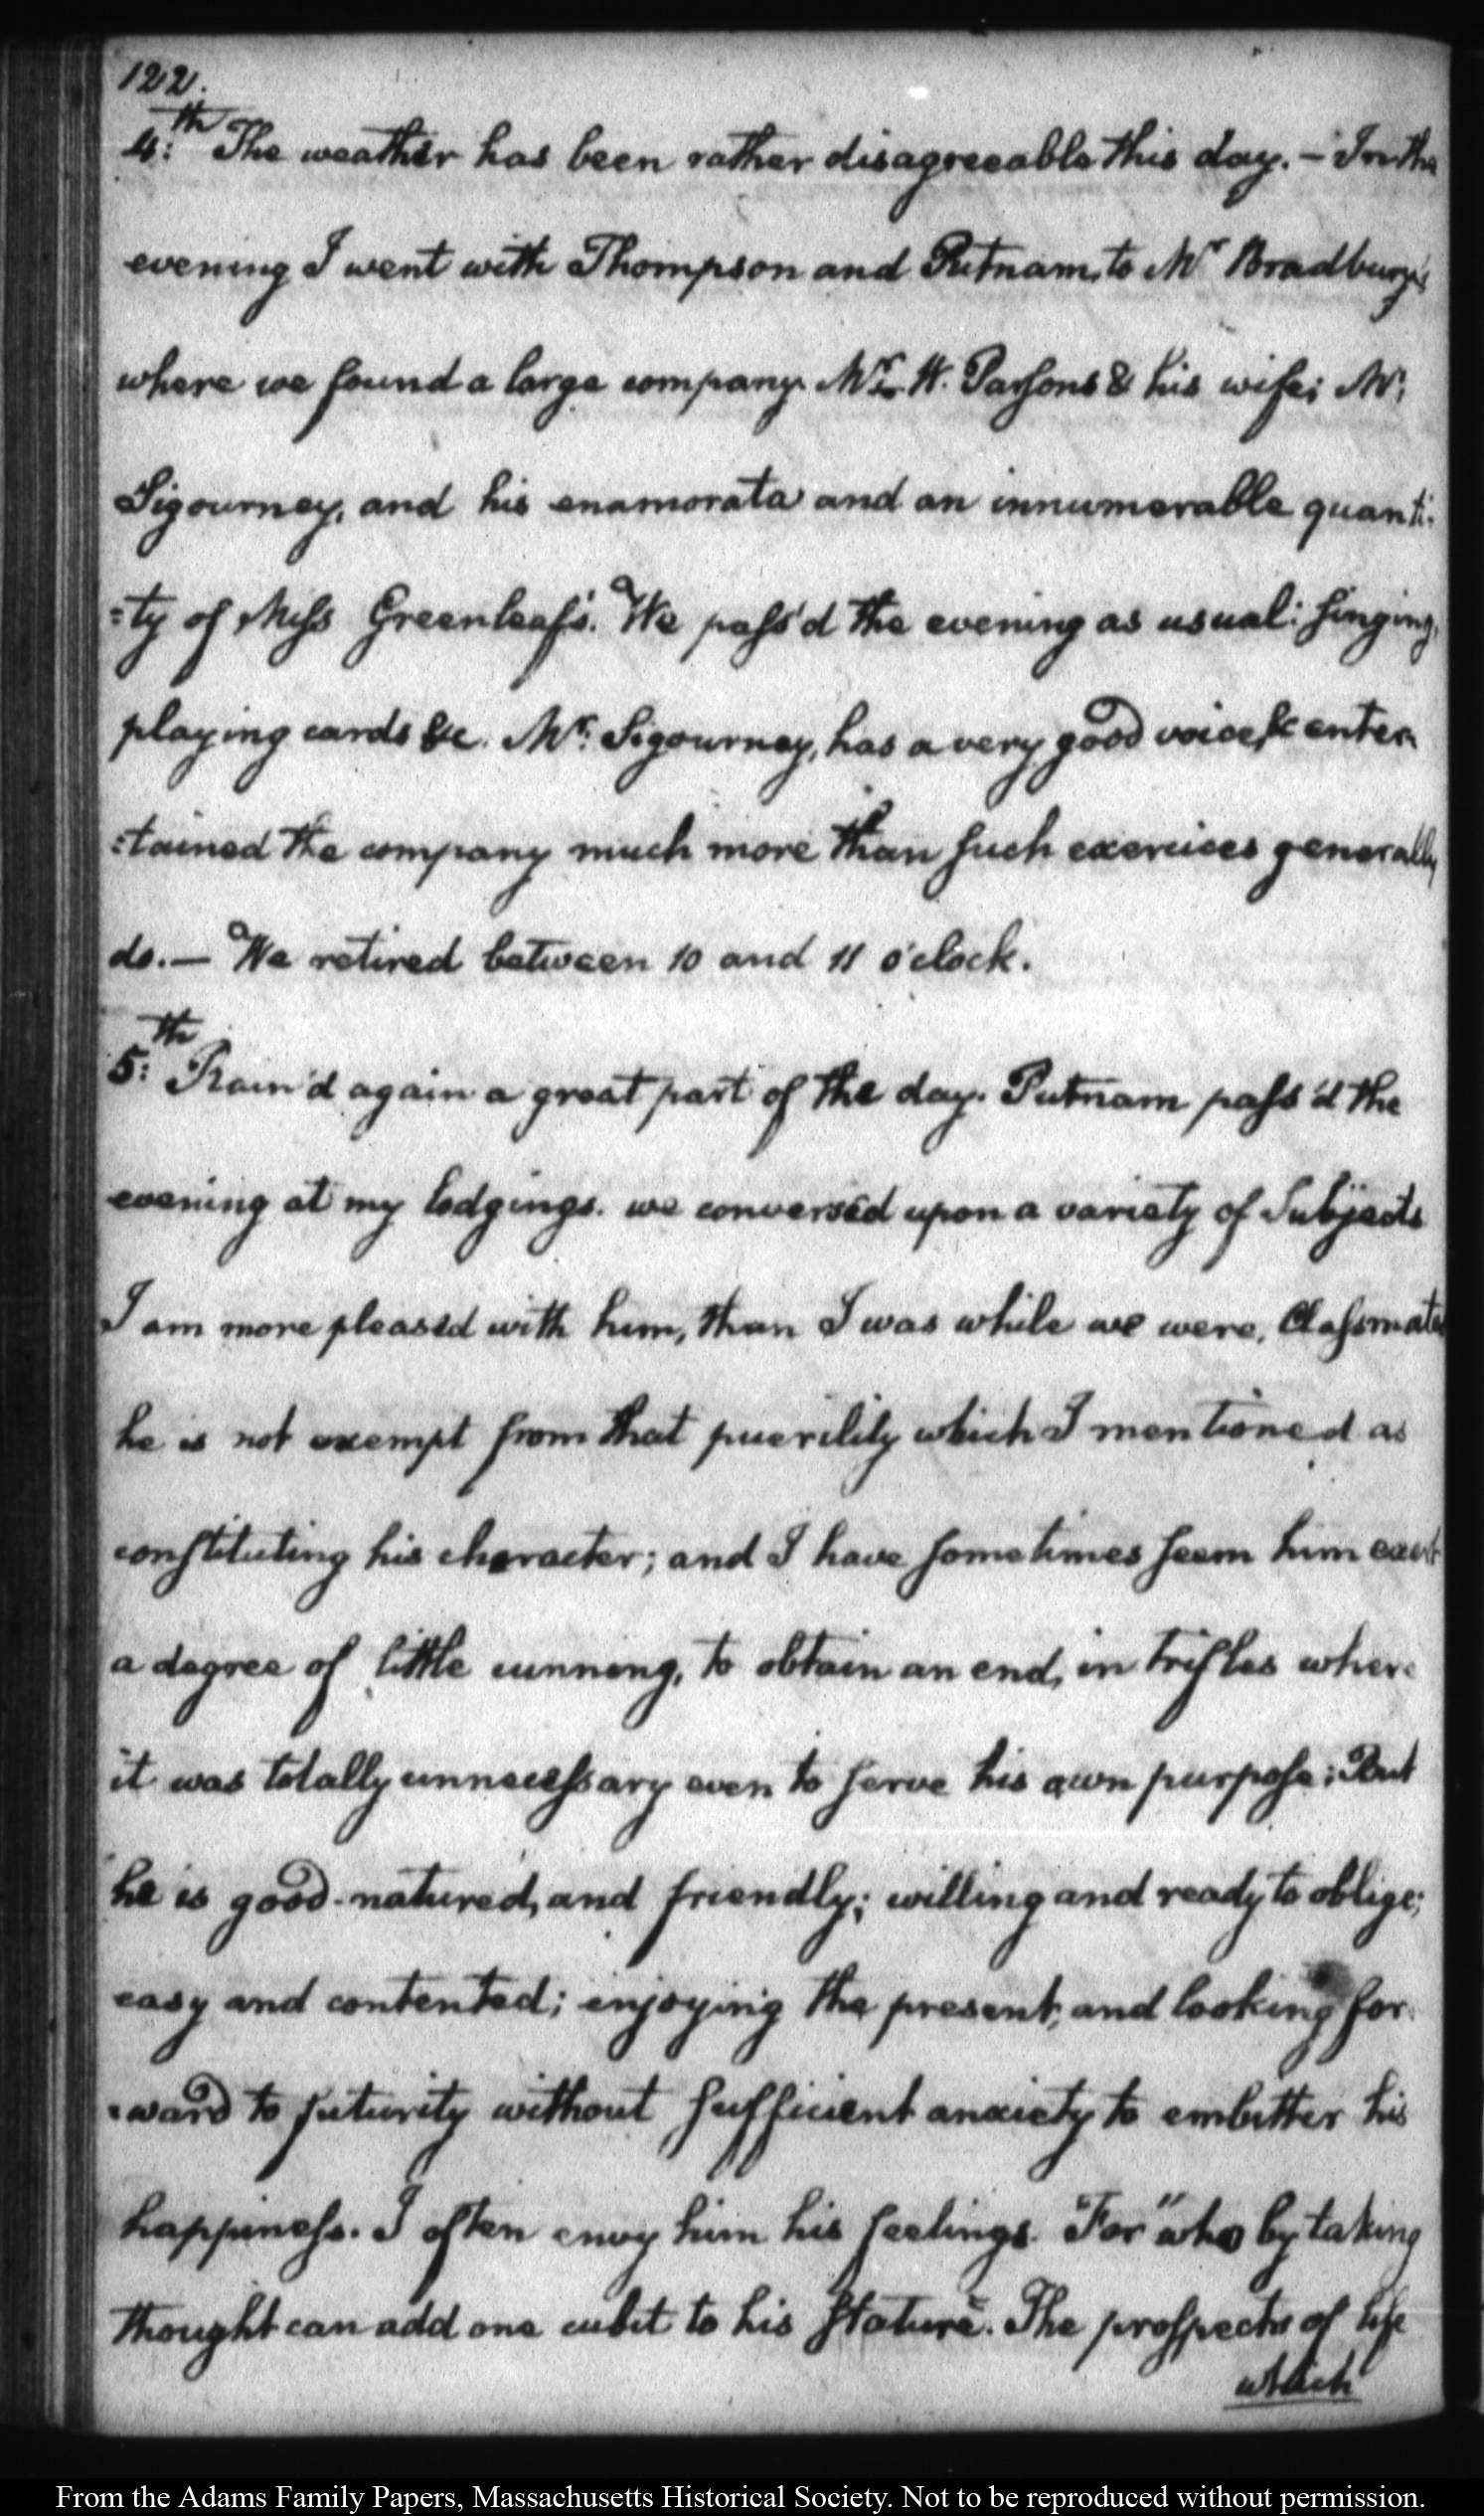 122.
4:th The weather has been rather disagreeable this day. – In the
evening I went with Thompson and Putnam, to Mr Bradbury's
where we found a large company. Mr. W. Parsons & his wife; Mr:
Sigourney, and his enamorata and an innumerable quanti-
=ty of Miss Greenleaf's. We pass'd the evening as usual: singing,
playing cards &c. Mr: Sigourney, has a very good voice, & enter-
=tained the company much more than such exercices generally
do. — We retired between 10 and 11 o'clock.
5:th Rain'd again a great part of the day. Putnam pass'd the
evening at my lodgings. we conversed upon a variety of Subjects
I am more pleased with him, than I was while we were, Classmates
he is not exempt from that puerility which I mentioned as
constituting his character; and I have sometimes seem him exert
a degree of little cunning, to obtain an end, in trifles where
it was totally unnecessary even to serve his own purpose; But
he is good-natured, and friendly; willing and ready to oblige;
easy and contented; enjoying the present, and looking for-
=ward to futurity without sufficient anxiety to embitter his
happiness. I often envy him his feelings. For "who by taking
thought can add one cubit to his stature". The prospects of life
which
From the Adams Family Papers, Massachusetts Historical Society. Not to be reproduced without permission.